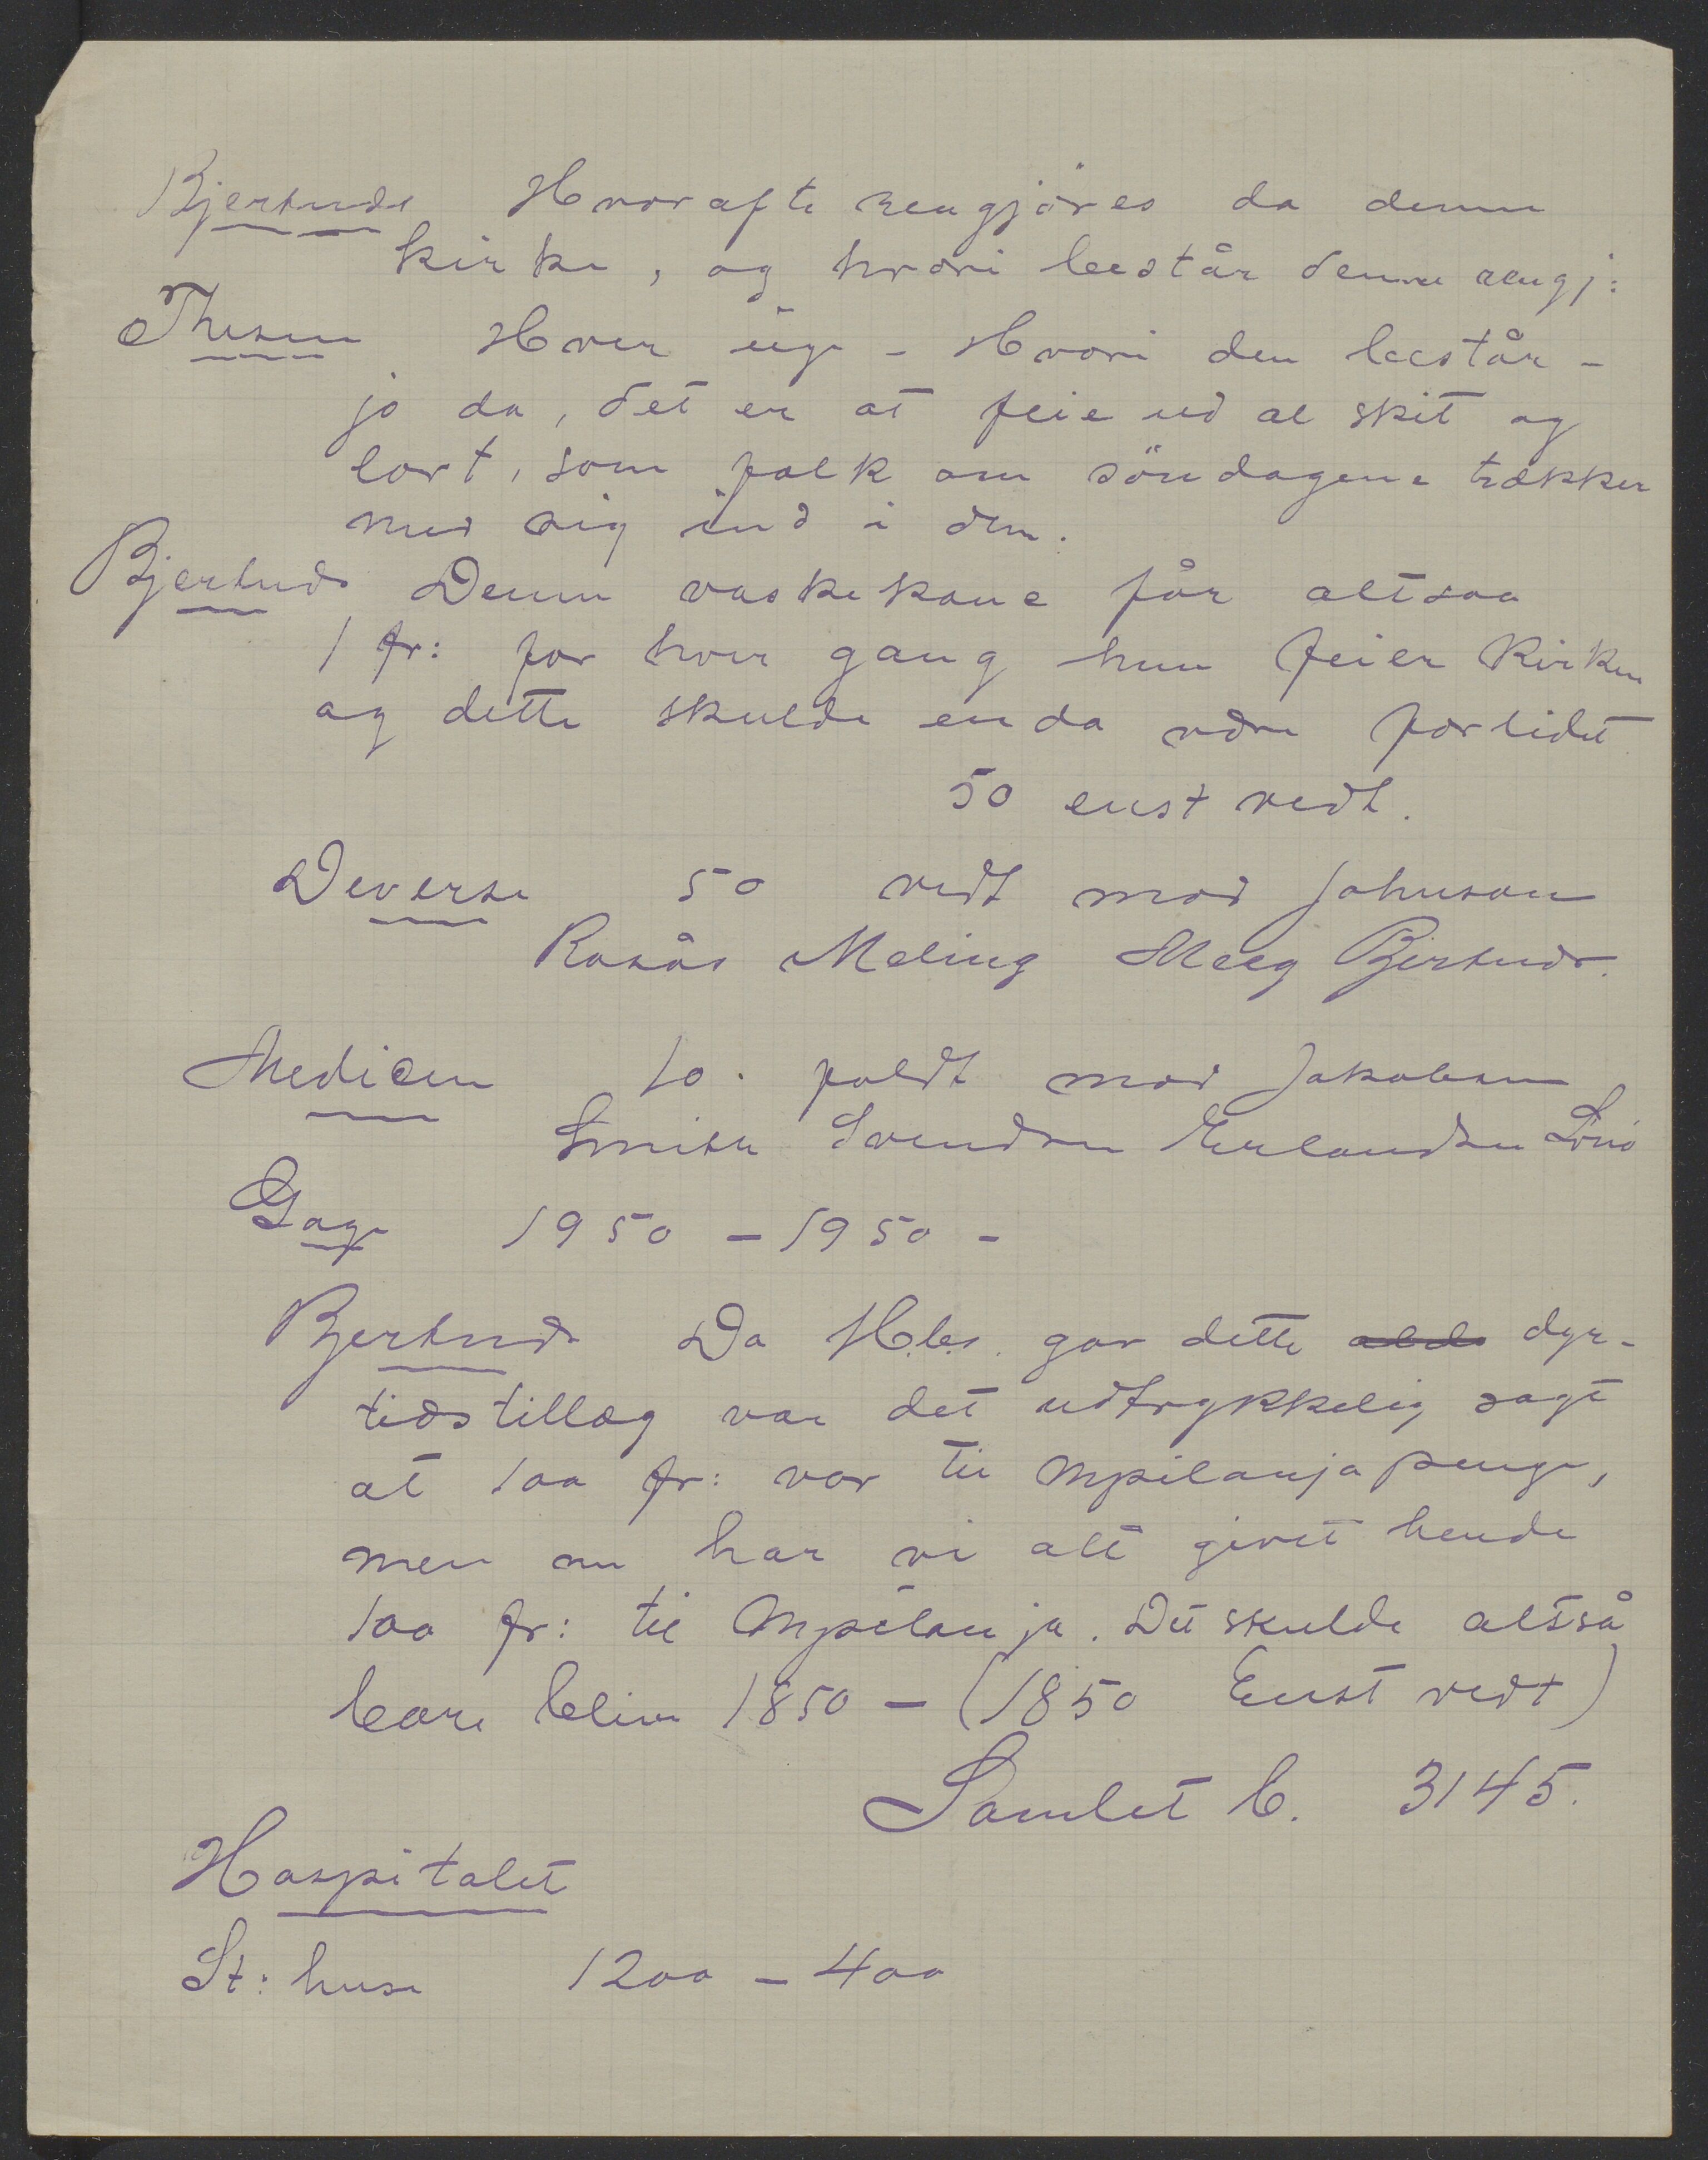 Bjertnæs Hvorofte rengjöres da denne
kirke, og hvori består denne rengj:
Thesen Hver uge - Hvori den består -
jo da, det er at feie ud al skit og
lort, som folk om söndagene trækker
med sig ind i den.
Bjertnæs Denne vaskekone får altsaa
1 fr: for hver gang hun feier kirken
og dette skulde enda være forlidet
50 enst vedt.
Deverse 50 vedt mod Johnson
Rosås Meling Meeg Bjertnæs.
Medicin 10. faldt mod Jakobsen
Smith Svendsen Erlandsen Lönö
Gage 1950 - 1950 -
Bjertnæs Da H.b.s. gav dette dyr-
tidstillæg var det udtrykkelig sagt
at 100 fr: var til Mpilanja penge,
men nu har vi alt givet hende
100 fr: til Mpilanja. Det skulde altså
bare blive 1850 - (1850 Enst vedt)
Samlet b. 3145.
Hospitalet
St: huse 1200 - 400